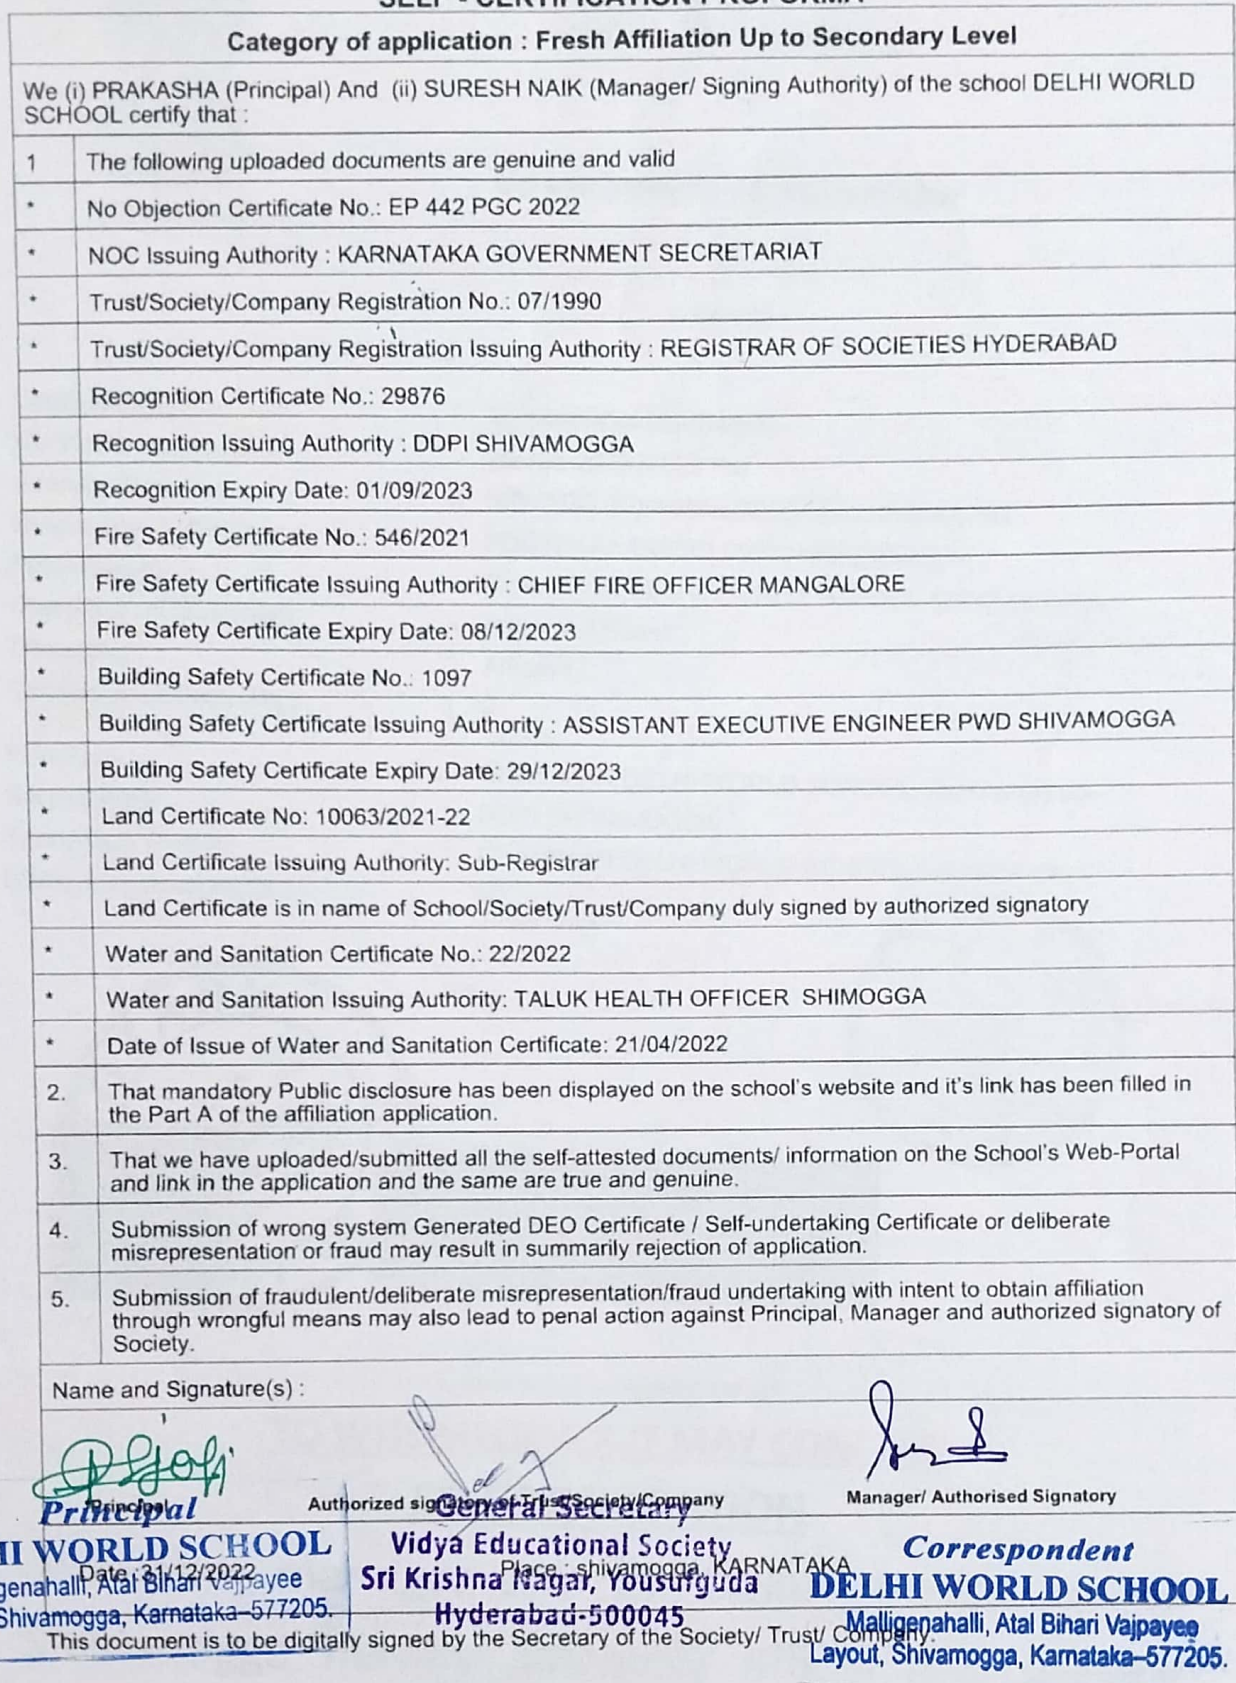 SELF - CERTIFICATION PROFORMA
Category of application : Fresh Affiliation Up to Secondary Level
We (i) PRAKASHA (Principal) And (ii) SURESH NAIK (Manager/ Signing Authority) of the school DELHI WORLD
SCHOOL certify that :
1 The following uploaded documents are genuine and valid
* No Objection Certificate No.: EP 442 PGC 2022
* NOC Issuing Authority : KARNATAKA GOVERNMENT SECRETARIAT
* Trust/Society/Company Registration No.: 07/1990
* Trust/Society/Company Registration Issuing Authority : REGISTRAR OF SOCIETIES HYDERABAD
* Recognition Certificate No.: 29876
* Recognition Issuing Authority : DDPI SHIVAMOGGA
* Recognition Expiry Date: 01/09/2023
* Fire Safety Certificate No.: 546/2021
* Fire Safety Certificate Issuing Authority : CHIEF FIRE OFFICER MANGALORE
* Fire Safety Certificate Expiry Date: 08/12/2023
* Building Safety Certificate No.: 1097
* Building Safety Certificate Issuing Authority : ASSISTANT EXECUTIVE ENGINEER PWD SHIVAMOGGA
* Building Safety Certificate Expiry Date: 29/12/2023
* Land Certificate No: 10063/2021-22
* Land Certificate Issuing Authority: Sub-Registrar
* Land Certificate is in name of School/Society/Trust/Company duly signed by authorized signatory
* Water and Sanitation Certificate No.: 22/2022
* Water and Sanitation Issuing Authority: TALUK HEALTH OFFICER SHIMOGGA
* Date of Issue of Water and Sanitation Certificate: 21/04/2022
2. That mandatory Public disclosure has been displayed on the school's website and it's link has been filled in
the Part A of the affiliation application.
3. That we have uploaded/submitted all the self-attested documents/ information on the School's Web-Portal
and link in the application and the same are true and genuine.
4. Submission of wrong system Generated DEO Certificate / Self-undertaking Certificate or deliberate
misrepresentation or fraud may result in summarily rejection of application.
5. Submission of fraudulent/deliberate misrepresentation/fraud undertaking with intent to obtain affiliation
through wrongful means may also lead to penal action against Principal, Manager and authorized signatory of
Society.
Name and Signature(s) :
Principal
Authorized signatory of Trust/Society/Company
Manager/ Authorised Signatory
Principal
HI WORLD SCHOOL
genahalli, Atal Bihari Vajpayee
Shivamogga, Karnataka–577205.
Date : 31/12/2022
General Secretary
Vidya Educational Society
Sri Krishna Nagar, Yousufguda
Hyderabad-500045
Place : shivamogga, KARNATAKA
Correspondent
DELHI WORLD SCHOOL
Malligenahalli, Atal Bihari Vajpayee
Layout, Shivamogga, Karnataka–577205.
This document is to be digitally signed by the Secretary of the Society/ Trust/ Company.